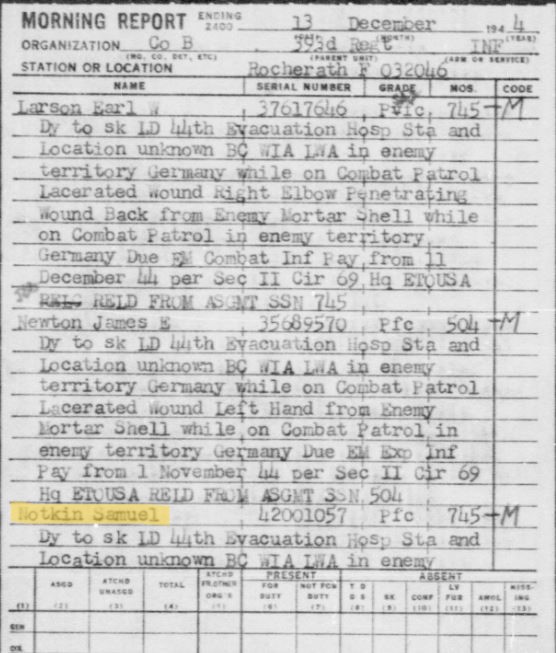 MORNING REPORT ENDING 2400 13 December 1944
(DAY) (MONTH) (YEAR)
ORGANIZATION Co B 393d Regt INF
(NO. CO. DET, ETC) (PARENT UNIT) (ARM OR SERVICE)
STATION OR LOCATION Rocherath F 032046
NAME SERIAL NUMBER GRADE MOS. CODE
Larson Earl W 37617646 Pvfc 745 -M
Dy to sk LD 44th Evacuation Hosp Sta and
Location unknown BC WIA LWA in enemy
territory Germany while on Combat Patrol
Lacerated Wound Right Elbow Penetrating
Wound Back from Enemy Mortar Shell while
on Combat Patrol in enemy territory
Germany Due EM Combat Inf Pay from 11
December 44 per Sec II Cir 69 Hq ETOUSA
RELD FROM ASGMT SSN 745
Newton James E 35689570 Pfc 504 -M
Dy to sk LD 44th Evacuation Hosp Sta and
Location unknown BC WIA LWA in enemy
territory Germany while on Combat Patrol
Lacerated Wound Left Hand from Enemy
Mortar Shell while on Combat Patrol in
enemy territory Germany Due EM Exp Inf
Pay from 1 November 44 per Sec II Cir 69
Hq ETOUSA RELD FROM ASGMT SSN 504
Notkin Samuel 42001057 Pfc 745 -M
Dy to sk LD 44th Evacuation Hosp Sta and
Location unknown BC WIA LWA in enemy
PRESENT ABSENT
ASGD ATCHD UNASGD TOTAL ATCHD FR OTHER ORG'S FOR DUTY NOT FOR DUTY T D D S SK CONF LV FUR AWOL MISSING
(1) (2) (3) (4) (5) (6) (7) (8) (9) (10) (11) (12) (13)